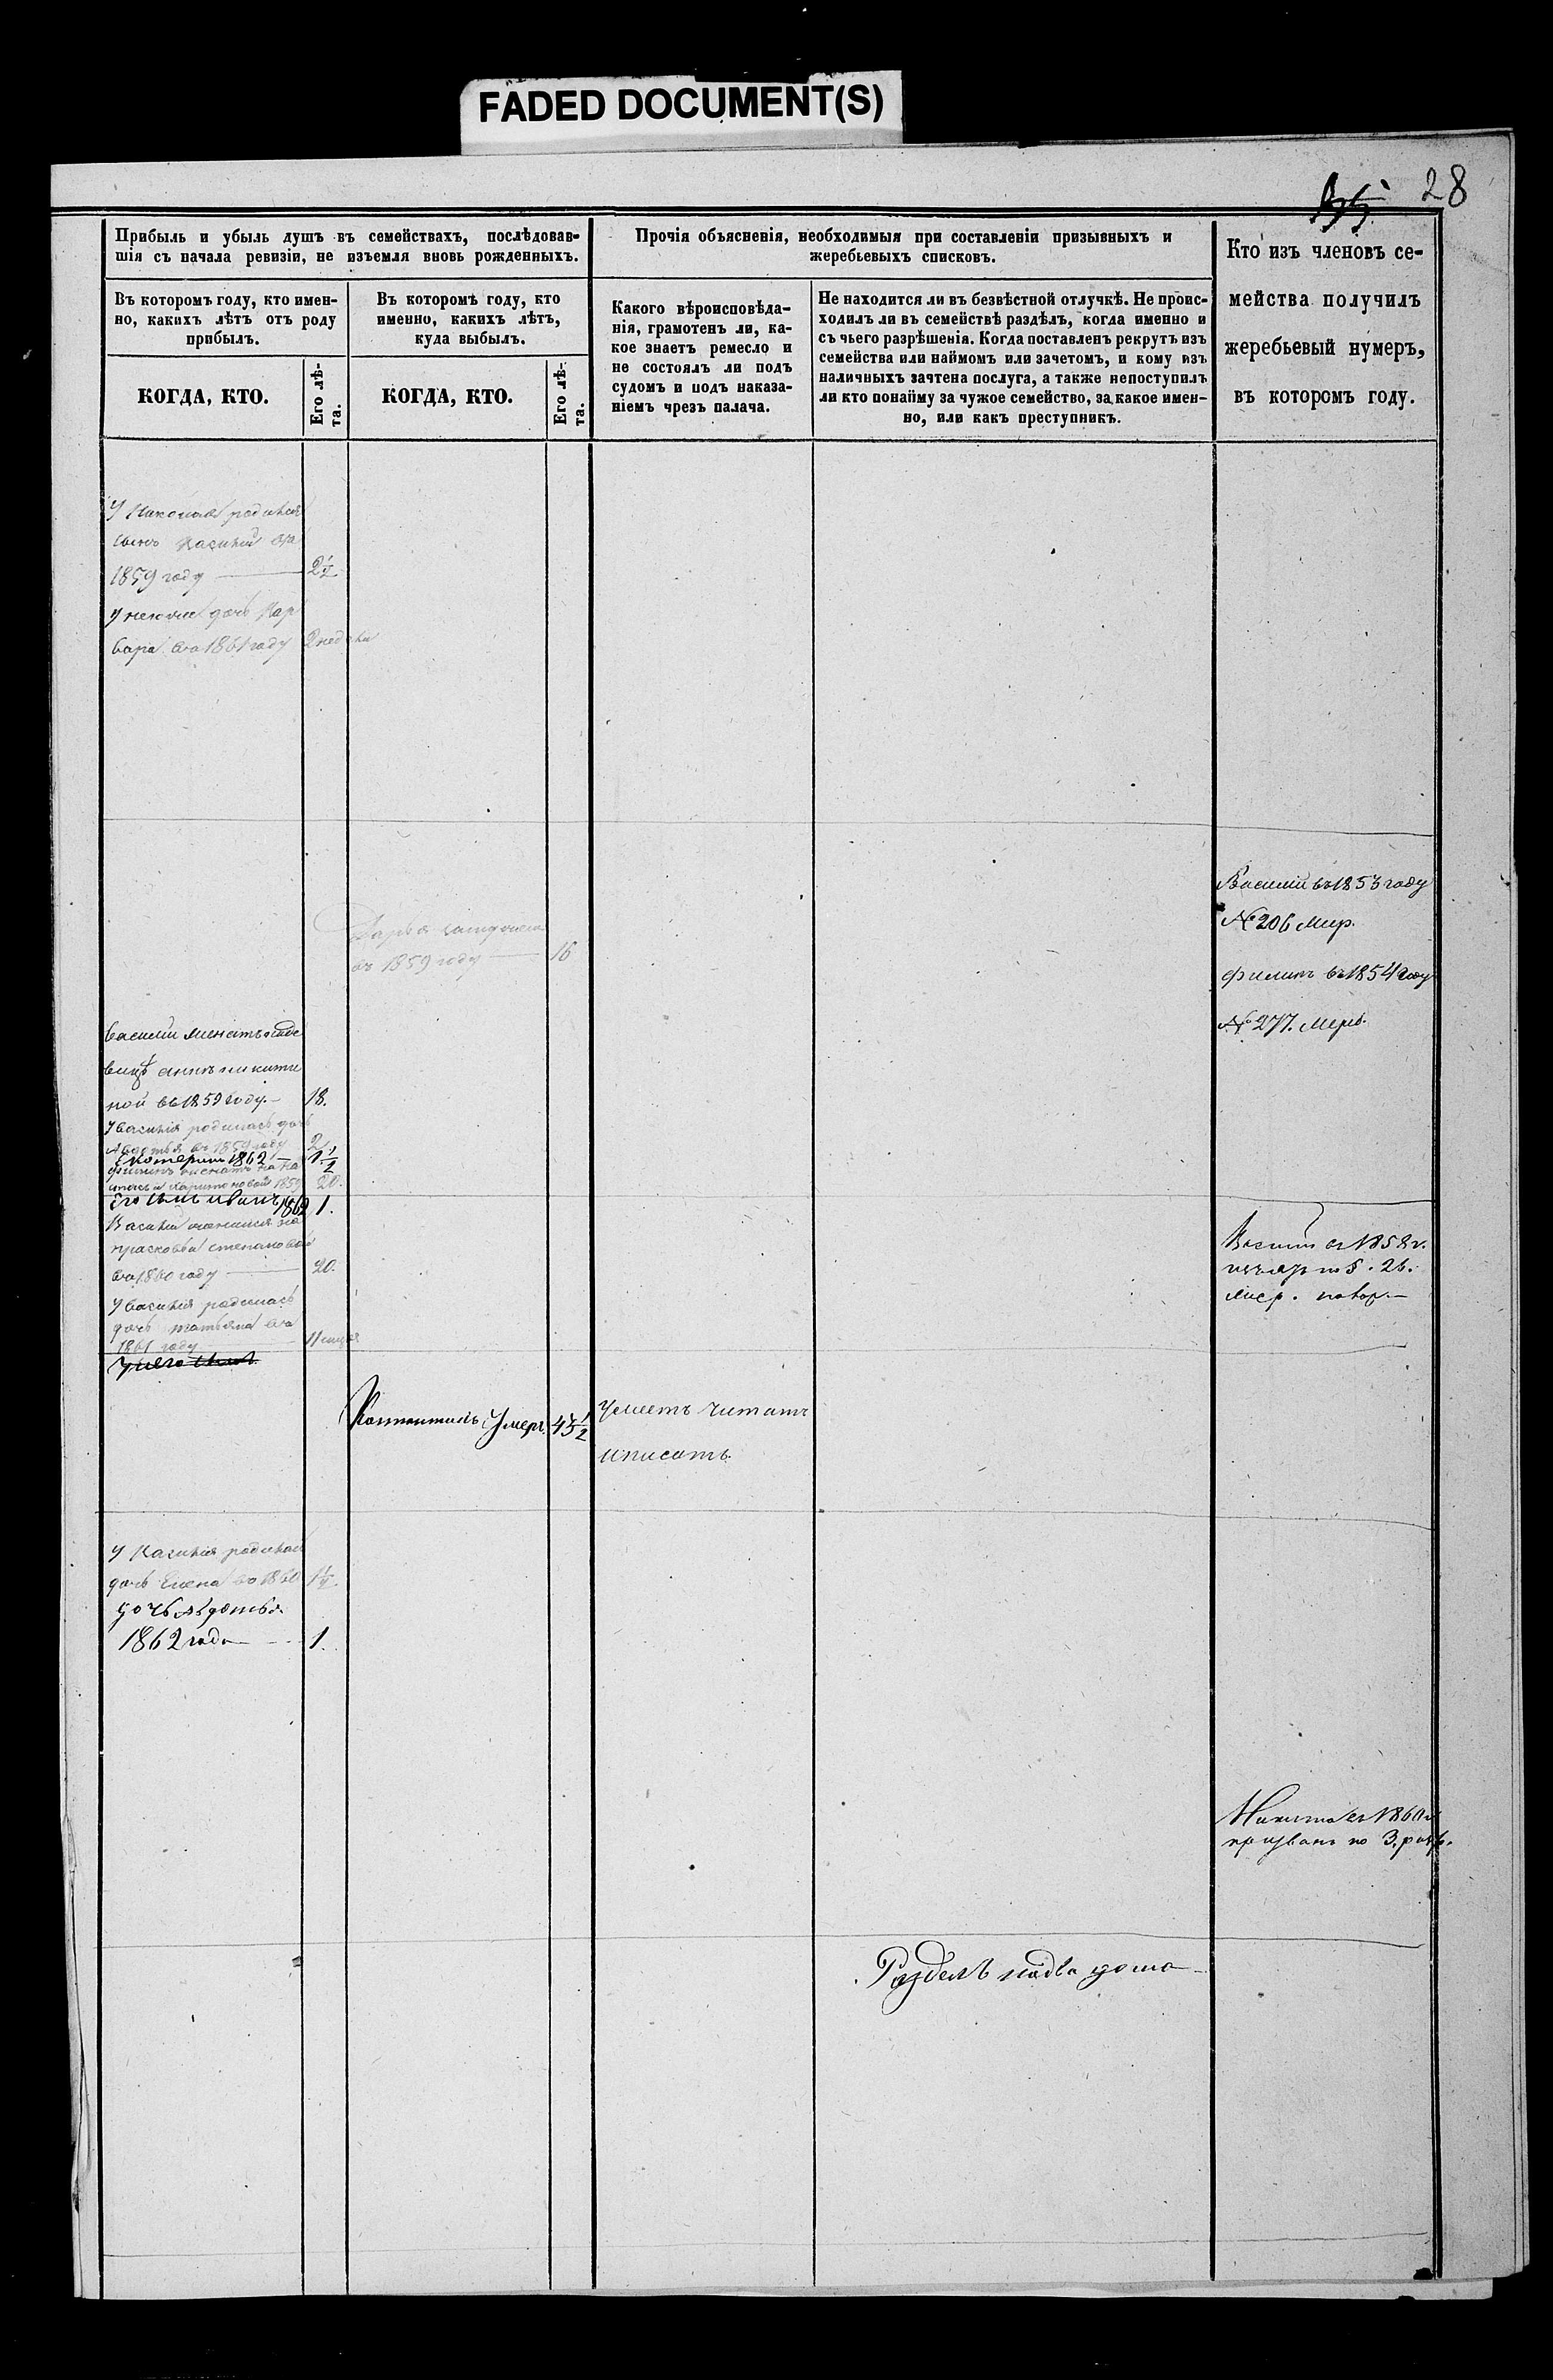 FADED DOCUMENT(S)
28
Прибыль и убыль душъ въ семействахъ, послѣдовав-
шія съ начала ревизіи, не изъемля вновь рожденныхъ.
Прочія объясненія, необходимыя при составленіи призывныхъ и
жеребьевыхъ списковъ.
Кто изъ членовъ се-
мейства получилъ
жеребьевый нумеръ,
въ которомъ году.
Въ которомъ году, кто имен-
но, какихъ лѣтъ отъ роду
прибылъ.
Въ которомъ году, кто
именно, какихъ лѣтъ,
куда выбылъ.
Какого вѣроисповѣда-
нія, грамотенъ ли, ка-
кое знаетъ ремесло и
не состоялъ ли подъ
судомъ и подъ наказа-
ніемъ чрезъ палача.
Не находится ли въ безвѣстной отлучкѣ. Не проис-
ходилъ ли въ семействѣ раздѣлъ, когда именно и
съ чьего разрѣшенія. Когда поставленъ рекрутъ изъ
семейства или наймомъ или зачетомъ, и кому изъ
наличныхъ зачтена послуга, а также непоступилъ
ли кто понайму за чужое семейство, за какое имен-
но, или какъ преступникъ.
КОГДА, КТО.
Его лѣ-
та.
КОГДА, КТО.
Его лѣ-
та.
У Николая родился
сынъ Василий въ
1859 году 2½
дочь Вар
вара во 1861 году 2 недели
Василій въ 1853 году
№ 206 Мир.
Дарья
въ 1859 году 16
Филипъ въ 1854 году
№ 277.
Василий женатъ на де
вицѣ Аннѣ Никити
ной въ 1859 году. 18.
У Василія родилась дочь
въ 1859 году 2
Екатерина 1862 1½
Филипъ женатъ на На
Харитоновой 1859 20.
Его сынъ Иванъ 1862 1.
Василий женился на
Прасковьи Степановой
во 1860 году 20.
Василій въ 1858 г.
по § 26.
У Василия родилась
дочь Татьяна во
1861 году 11
У него сынъ
Константинъ Умеръ 43½
Умеетъ читать
и писать.
У Василия родилась
дочь Елена во 1860 1½
дочь Авдотья
1862 года 1.
Никита въ 1860 г.
призванъ по 3. разр.
Разделъ на два дома